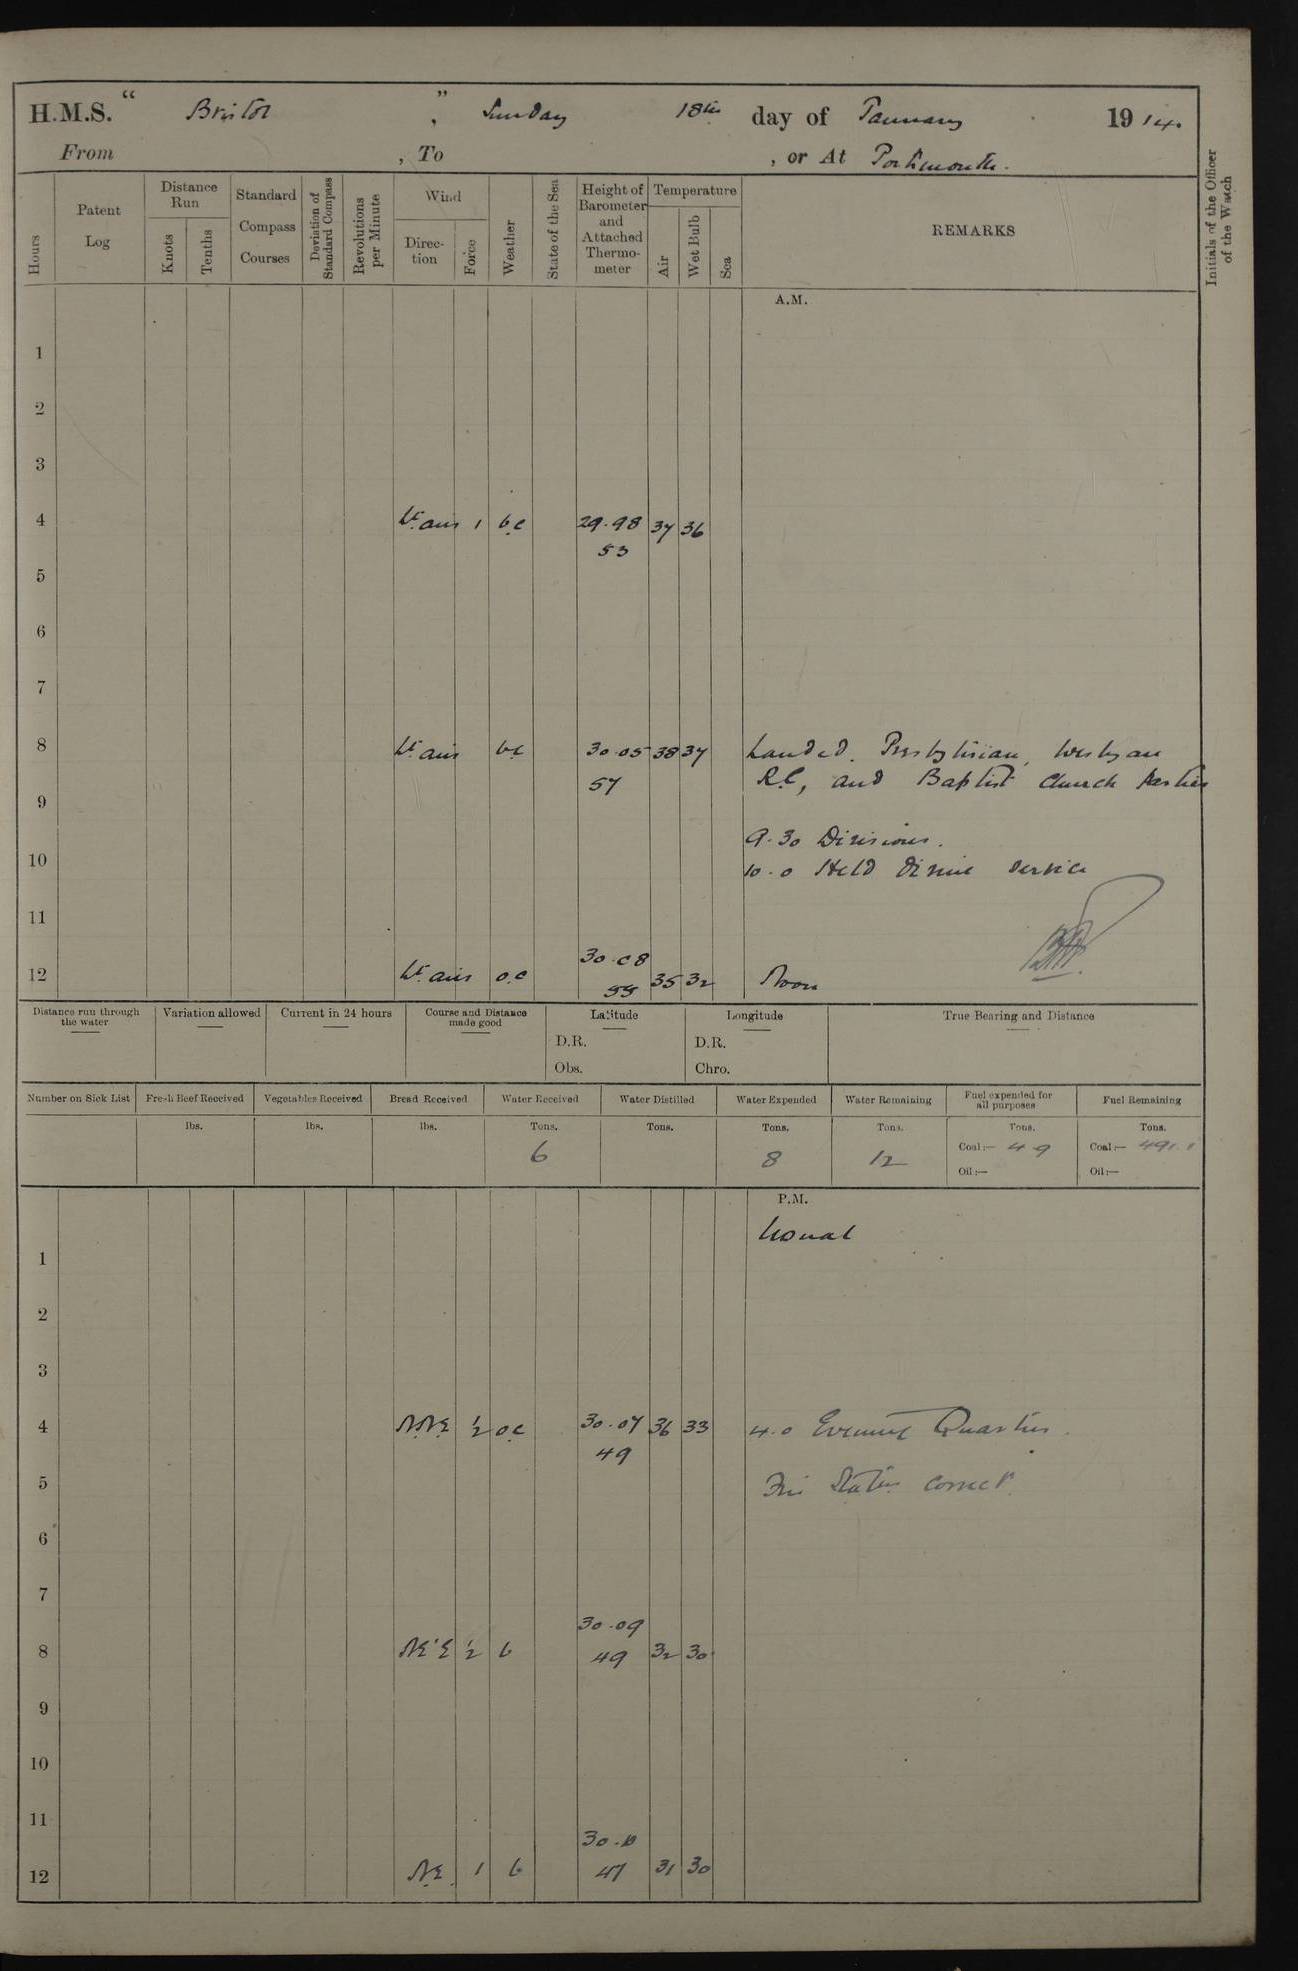 H.M.S. “ Bristol ” , Sunday 18th day of January 1914.
From , To , or At Portsmouth.
Hours
Patent Log
Distance Run
Knots
Tenths
Standard Compass Courses
Deviation of Standard Compass
Revolutions per Minute
Wind
Direction
Force
Weather
State of the Sea
Height of Barometer and Attached Thermometer
Temperature
Air
Wet Bulb
Sea
REMARKS
Initials of the Officer of the Watch
A.M.
1
2
3
4 Lt airs 1 b.c 29.98 37 36
53
5
6
7
8 Lt airs b.c 30.05 38 37 Landed Presbyterian, Wesleyan
57 R.C, and Baptist Church Parties
9
9.30 Divisions.
10 10.0 Held divine service
11
30.08
12 Lt airs o.c 55 35 32 Noon
Distance run through the water
Variation allowed
Current in 24 hours
Course and Distance made good
Latitude
D.R.
Obs.
Longitude
D.R.
Chro.
True Bearing and Distance
Number on Sick List
Fresh Beef Received lbs.
Vegetables Received lbs.
Bread Received lbs.
Water Received Tons. 6
Water Distilled Tons.
Water Expended Tons. 8
Water Remaining Tons. 12
Fuel expended for all purposes Tons.
Coal:— 49
Oil:—
Fuel Remaining Tons.
Coal:— 491
Oil:—
P.M.
Usual
1
2
3
4 N.N.E ½ o.c 30.07 36 33 4.0 Evening Quarters.
49
5 Fire Stations correct.
6
7
30.09
8 NE'E ½ b 49 32 30
9
10
11
30.10
12 N.E. 1 b 47 31 30